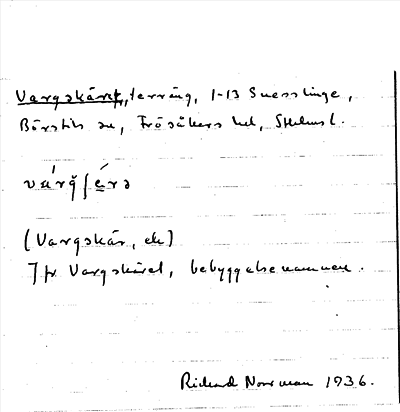 Vargskäret, terräng, 1-13 Snesslinge,
Börstils sn, Frösåkers hd, Sthlms l.
várğʃérə
(Vargskär, ek)
Jfr Vargskäret, bebyggelsenamnen.
Rickard Norrman 1936.